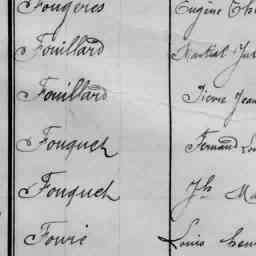 Fougères Eugène
Fouillard Martial
Fouillard Pierre Jean
Fouquet Fernand
Fouquet Jh
Fouré Louis